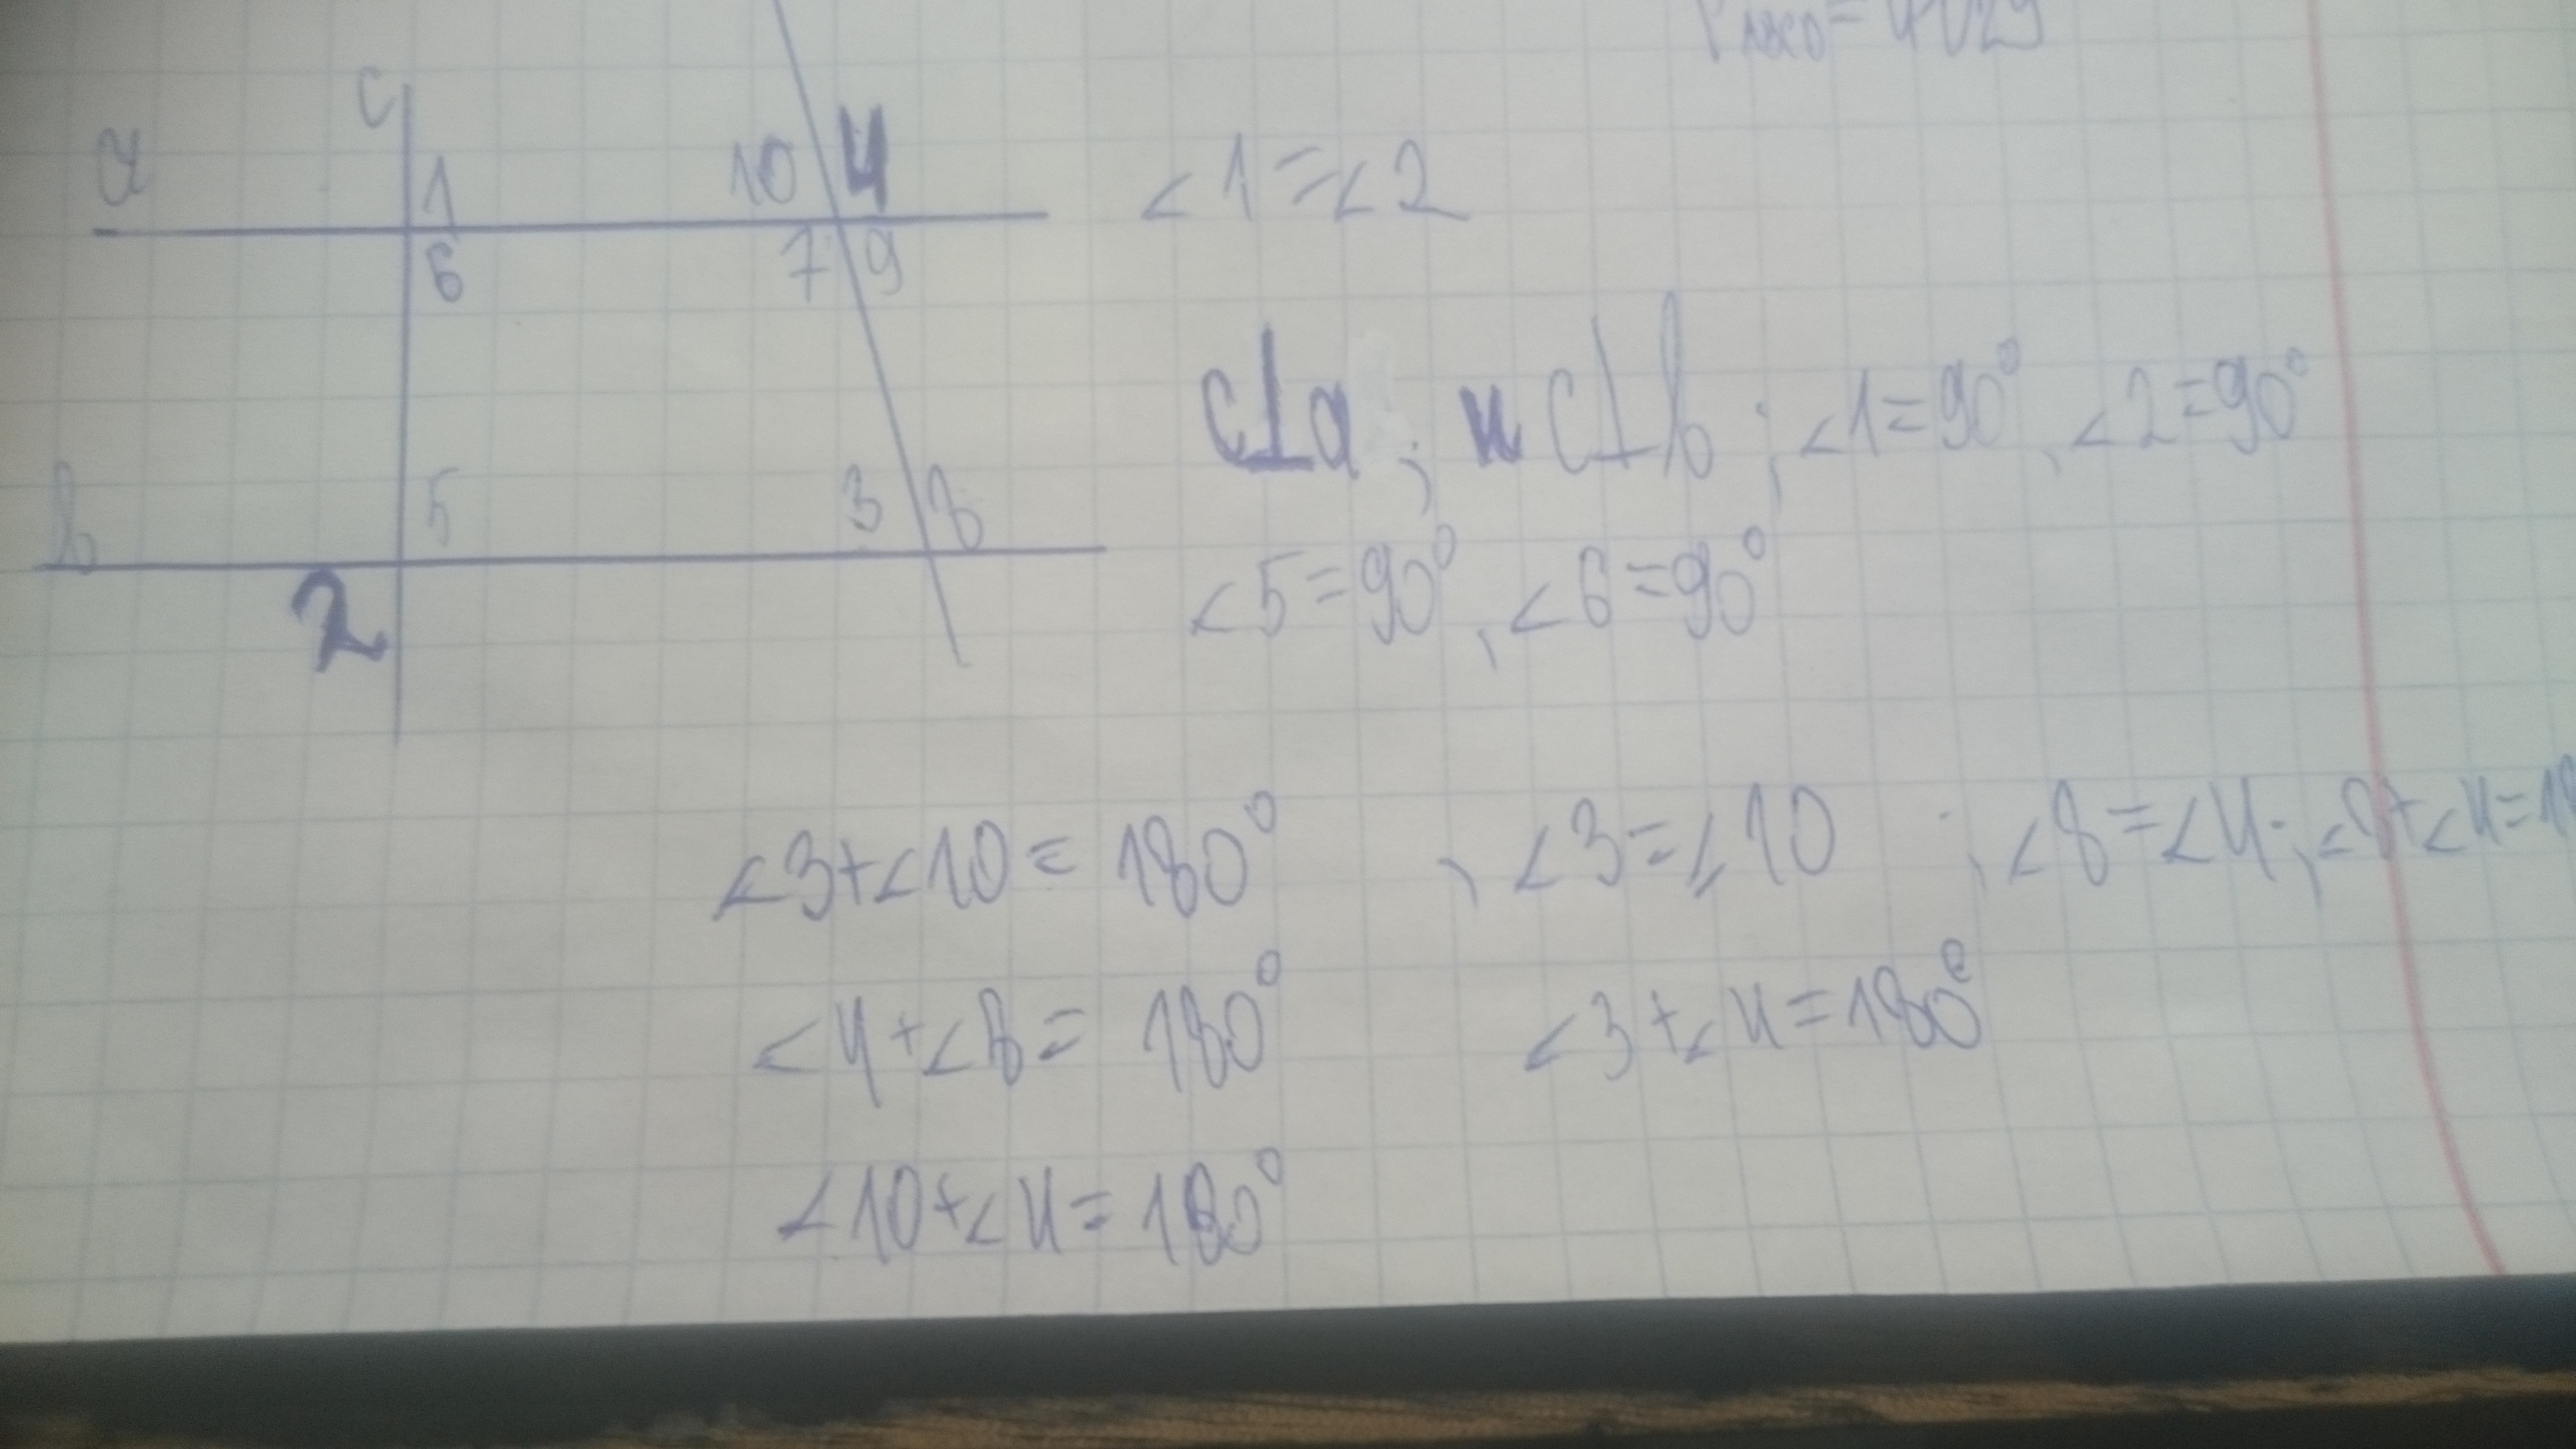 c
a
1
10
4
6
7
9
b
5
3
8
2
∠1=∠2
c⊥a; и c⊥b; ∠1=90°, ∠2=90°
∠5=90°, ∠6=90°
∠3+∠10=180°, ∠3=∠10; ∠8=∠4;
∠4+∠8=180° ∠3+∠4=180°
∠10+∠4=180°